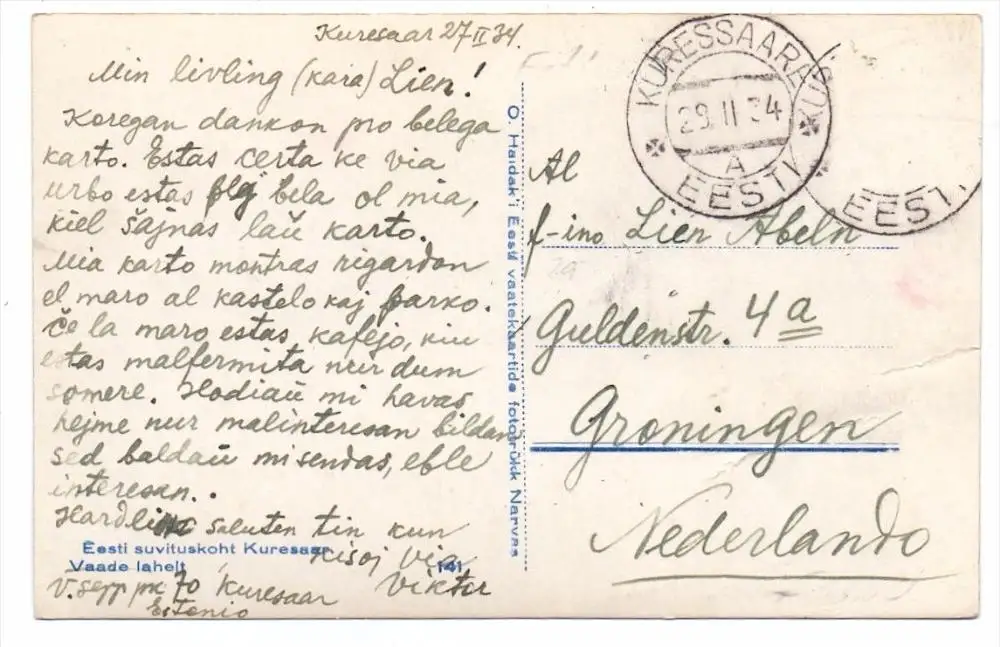 Kuresaar 27 II 34.
Min livling (kara) Lien!
Koregan dankon pro belega
karto. Estas certa ke via
urbo estas bela ol mia,
kiel šajnas laŭ karto.
Mia karto montras rigardon
el maro al kastelo kaj parko.
Ĉe la maro estas kafejo, kiu
estas malfermita nur dum
somere. Hodiaŭ mi havas
hejme nur malinteresan bildan
sed baldaŭ mi sendas, eble
interesan.
saluten tin kun
kisoj via
Viktor
V. Sepp pk 70 Kuresaar
Estonio
Eesti suvituskoht Kuresaar
Vaade lahelt
141
O. Haidak'i Eesti vaatekaartide fototrükk Narvas
KURESSAARE
29. II 34
A
EESTI
KU
EESTI
Al
f-ino Lien Abeln
Guldenstr. 4a
Groningen
Nederlando